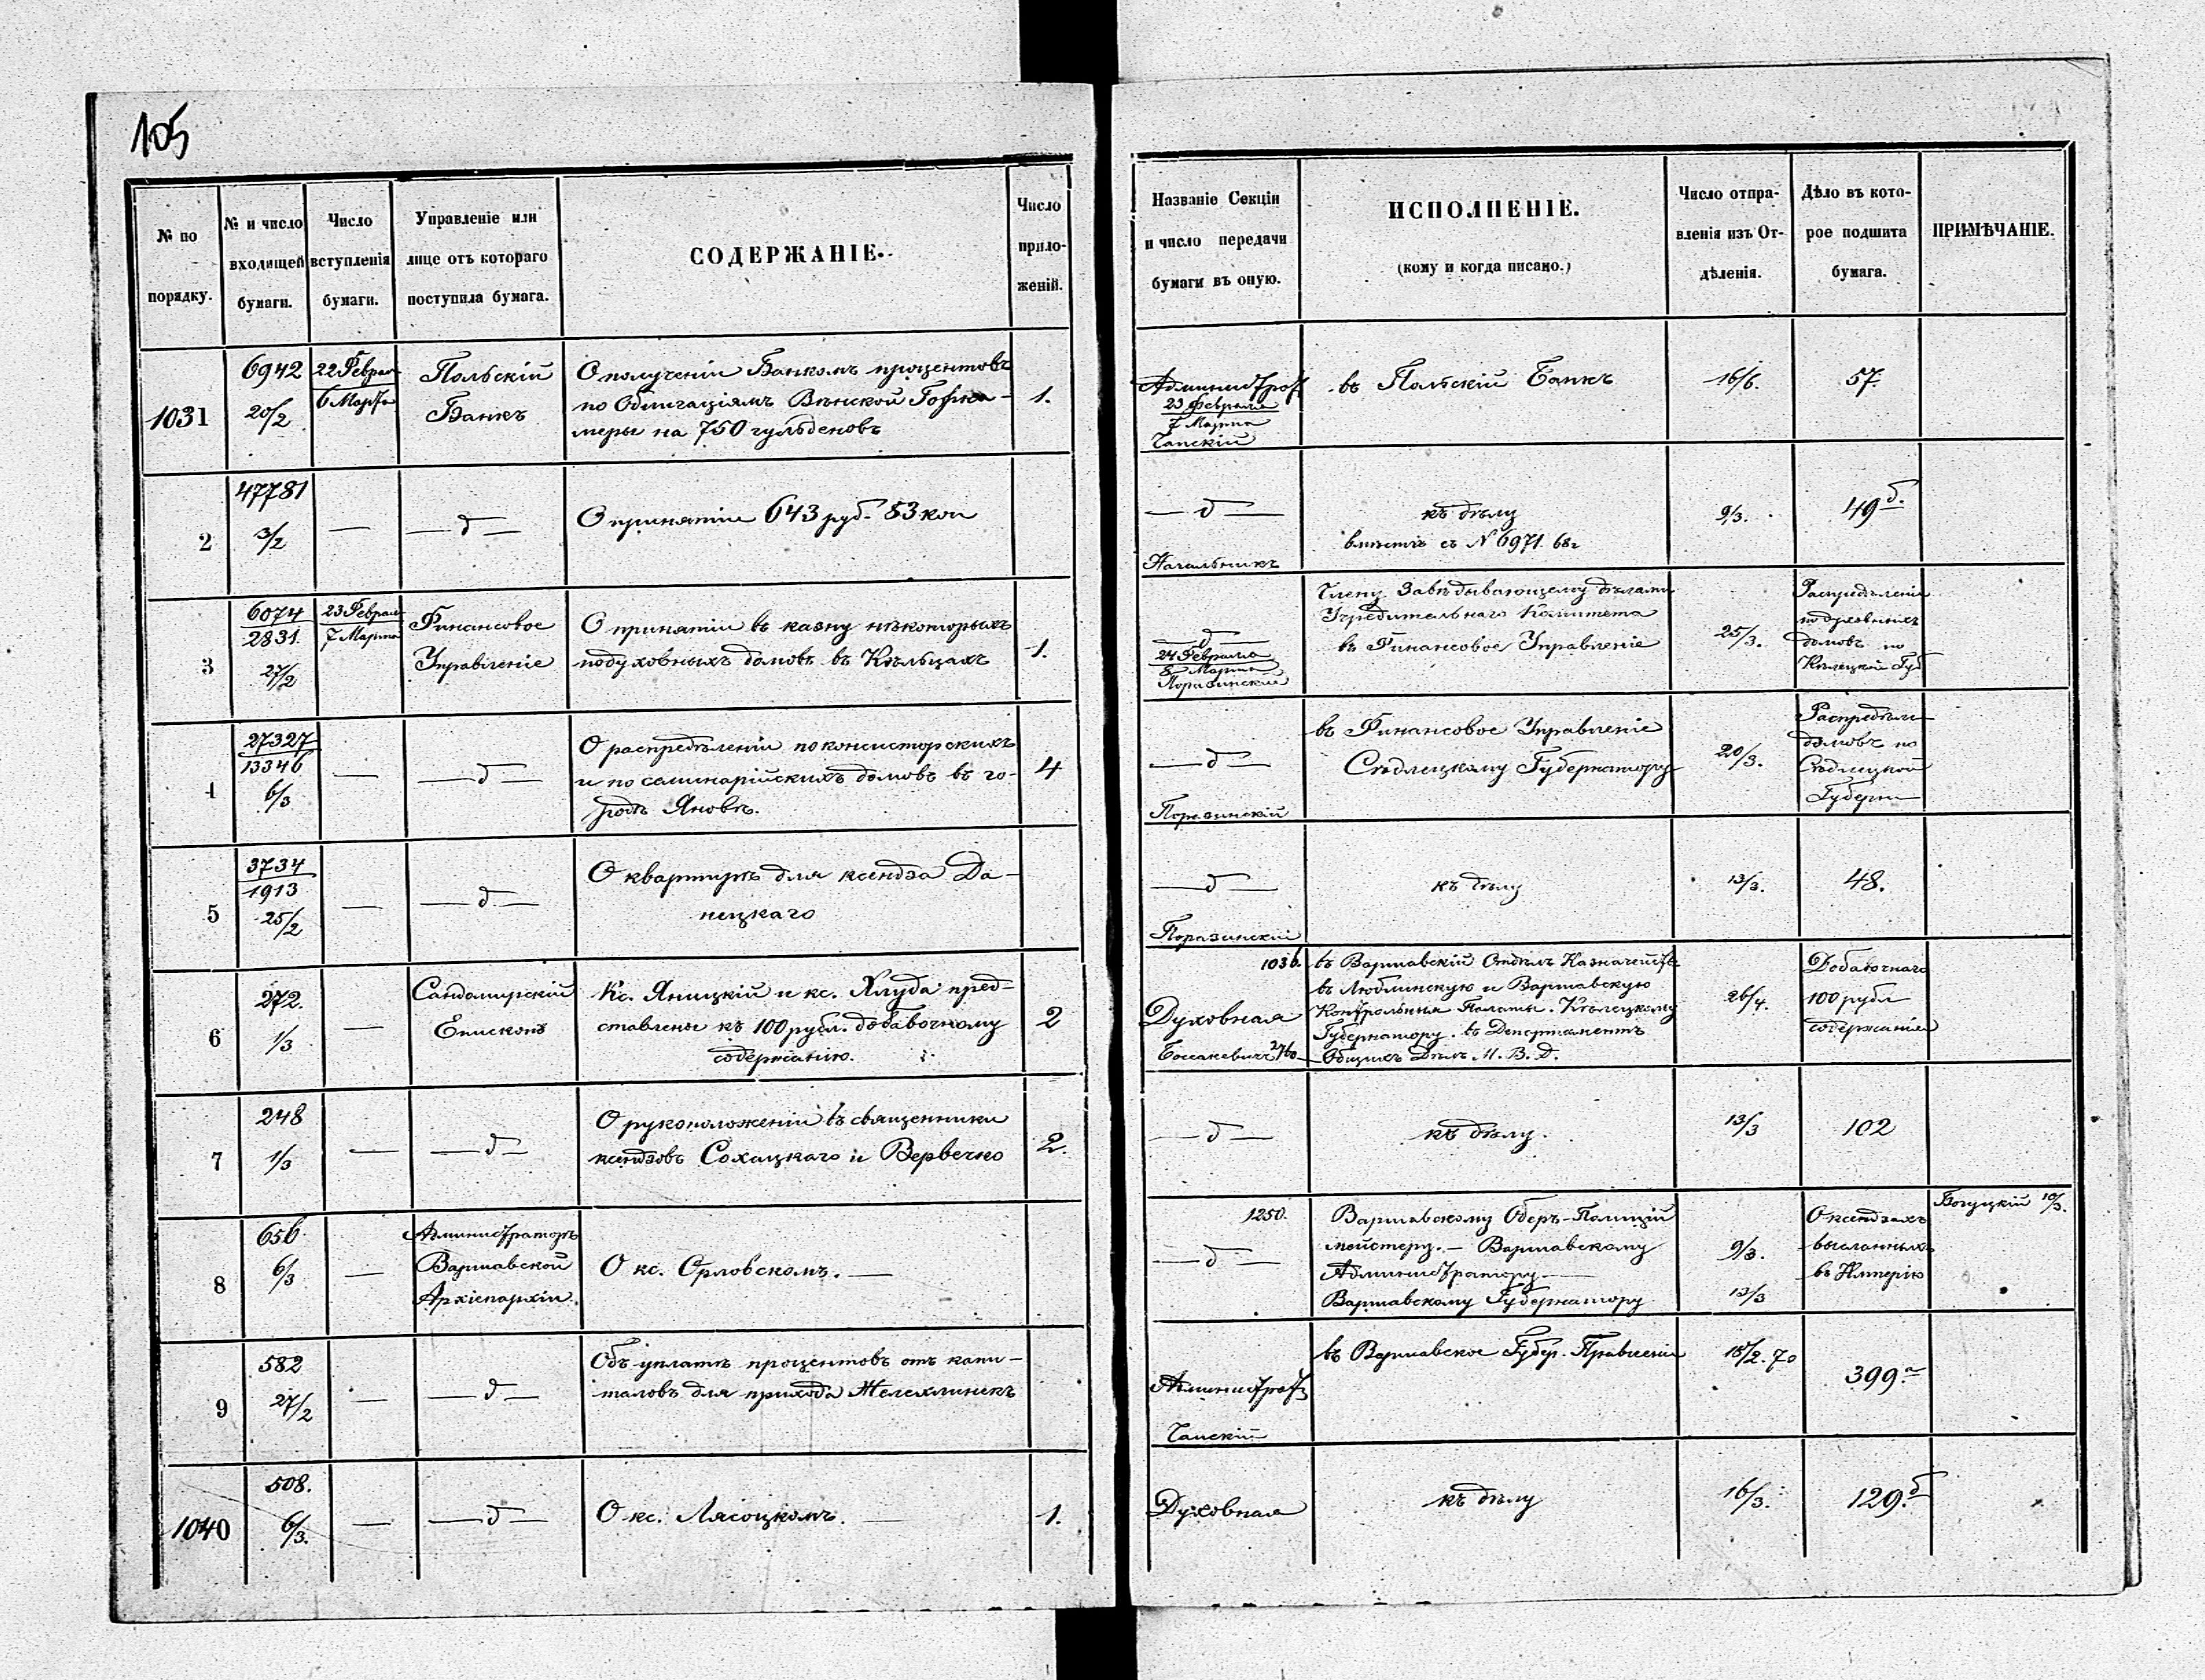 105
№ по порядку.
№ и число входящей бумаги.
Число вступленія бумаги.
Управленіе или лице отъ котораго поступила бумага.
СОДЕРЖАНІЕ.
Число приложеній.
Названіе Секціи и число передачи бумаги въ оную.
ИСПОЛНЕНІЕ.
(кому и когда писано.)
Число отправленія изъ Отдѣленія.
Дѣло въ которое подшита бумага.
ПРИМѢЧАНІЕ.
1031
6942
20/2
22 Феврал
6 Марта
Польскій
Банкъ
О полученіи Банкомъ процентовъ
по Облигаціямъ Вѣнской
меры на 750 гульденовъ
1.
23 Февраля
7 Марта
Чапскій
въ Польскій Банкъ
16/6.
57
2
47781
3/2
—
— д —
О принятіи 643 руб. 83 коп
— д —
Начальникъ
къ дѣлу
вмѣстѣ съ N 6971. 68г
9/3.
49 б.
3
6074
2831.
27/2
23 Феврал
7 Марта
Финансовое
Управленіе
О принятіи въ казну нѣкоторыхъ
подуховныхъ домовъ въ Кѣльцахъ
1.
д
24 Февраля
8 Марта
Поразинскій
Члену Завѣдывающему дѣлами
Учредительнаго Комитета
въ Финансовое Управленіе
25/3.
Распредѣленіе
подуховныхъ
домовъ по
Кѣлецкой Губ
4
27327
13346
6/3
—
— д —
О распредѣленіи поконсисторскихъ
и по семинарійскихъ домовъ въ го-
родѣ Яновѣ.
4
— д —
Поразинскій
въ Финансовое Управленіе
Сѣдлецкому Губернатору
20/3.
Распредѣле
домовъ по
Сѣдлецкой
Губерн
5
3734
1913
25/2
—
— д —
О квартирѣ для ксендза Да-
нецкаго
— д —
Поразинскій
къ дѣлу
13/3.
48.
6
272.
1/3
—
Сандомирскій
Епископъ
Кс. Яницкій и кс. Хлуда пред-
ставлены къ 100 рубл. добавочному
содержанію.
2
1036.
Духовная
въ Варшавскій Отдѣлъ Казначейств
въ Люблинскую и Варшавскую
Контрольныя Палаты. Кѣлецкому
Губернатору. въ Департаментъ
Общихъ Дѣлъ М. В. Д.
26/4.
Добавочнаго
100 рубл
содержанія
7
248
1/3
—
— д —
О рукоположеніи въ священники
ксендзовъ Сохацкаго и Вервечко
2.
— д —
къ дѣлу.
13/3
102
8
656
6/3
—
Администраторъ
Варшавской
Архіепархіи.
О кс. Орловскомъ. —
1250.
— д —
Варшавскому Оберъ-Полицій
мейстеру. — Варшавскому
Администратору —
Варшавскому Губернатору
9/3.
13/3
О ксендзахъ
высланныхъ
въ Имперію
Богуцкій 10/3.
9
582
27/2
—
— д —
Объ уплатѣ процентовъ отъ капи-
таловъ для прихода
Чапскій
въ Варшавское Губер. Правленіе
18/2. 70
399.а
1040
508.
6/3.
—
— д —
О кс. Лясоцкомъ. —
1.
Духовная
къ дѣлу
16/3.
129. б